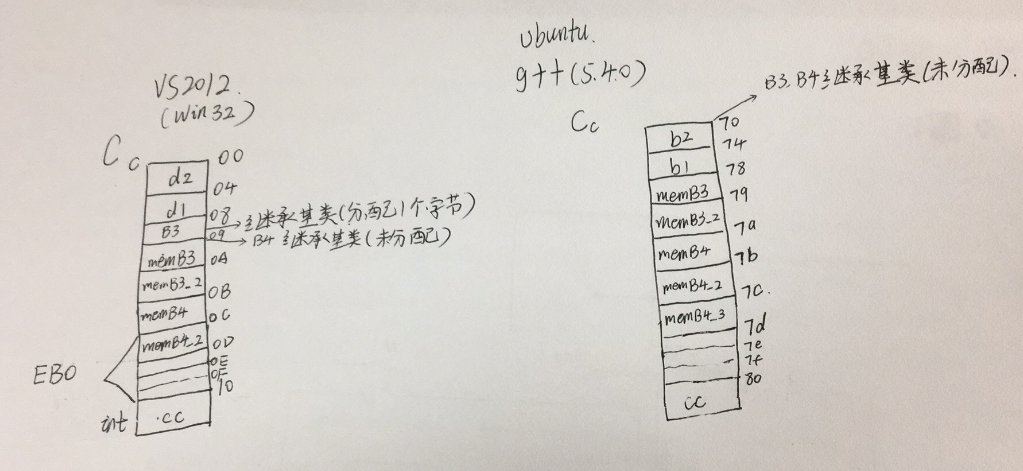 VS2012.
(Win32)
C c
00
d2
04
d1
08
继承基类(分配1个字节)
B3
09
B4继承基类(未分配)
memB3
0A
memB3_2
0B
memB4
0C
memB4_2
0D
0E
0F
10
EBO
int
.cc
Ubuntu.
g++(5.4.0)
B3.B4继承基类(未分配).
C c
70
b2
74
b1
78
memB3
79
memB3_2
7a
memB4
7b
memB4_2
7c.
memB4_3
7d
7e
7f
80
cc